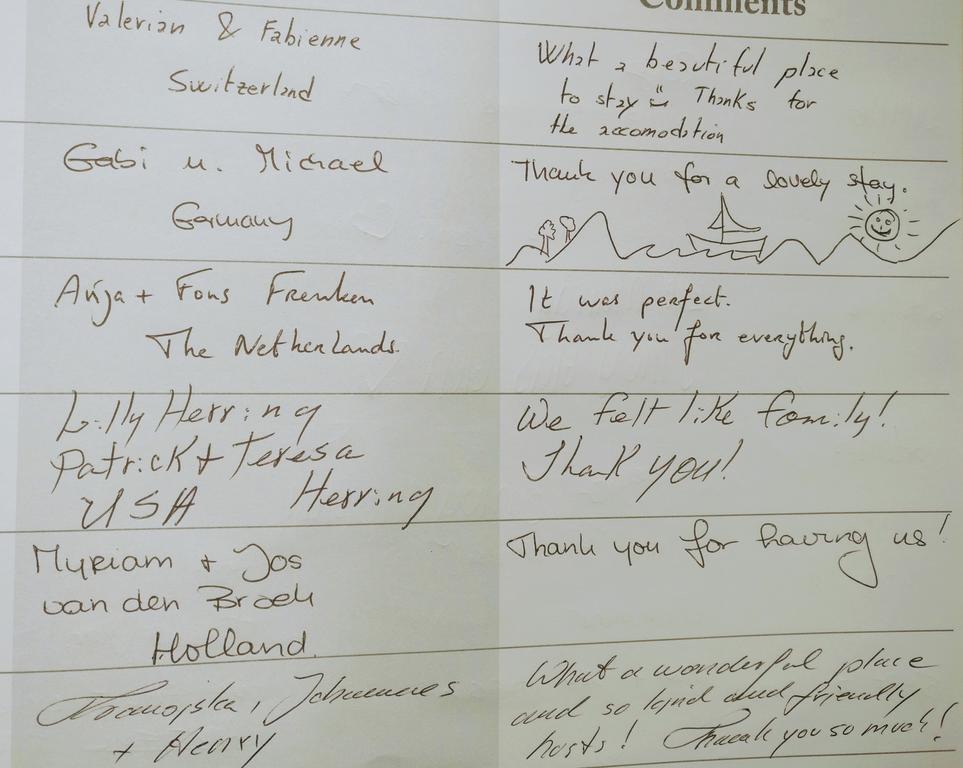 Comments
Valerian & Fabienne
Switzerland
What a beautiful place
to stay Thanks for
the accomodation
Gabi u. Michael
Germany
Thank you for a lovely stay.
Anja + Fons Frenken
The Netherlands.
It was perfect.
Thank you for everything.
Lilly Herring
Patrick + Teresa
USA Herring
We felt like family!
Thank you!
Myriam + Jos
van den Broek
Holland.
Thank you for having us!
Franziska, Johannes
+ Henry
What a wonderful place
and so kind and friendly
hosts! Thank you so much!